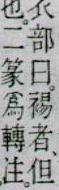 衣部曰。裼者、但
也。二篆爲轉注。